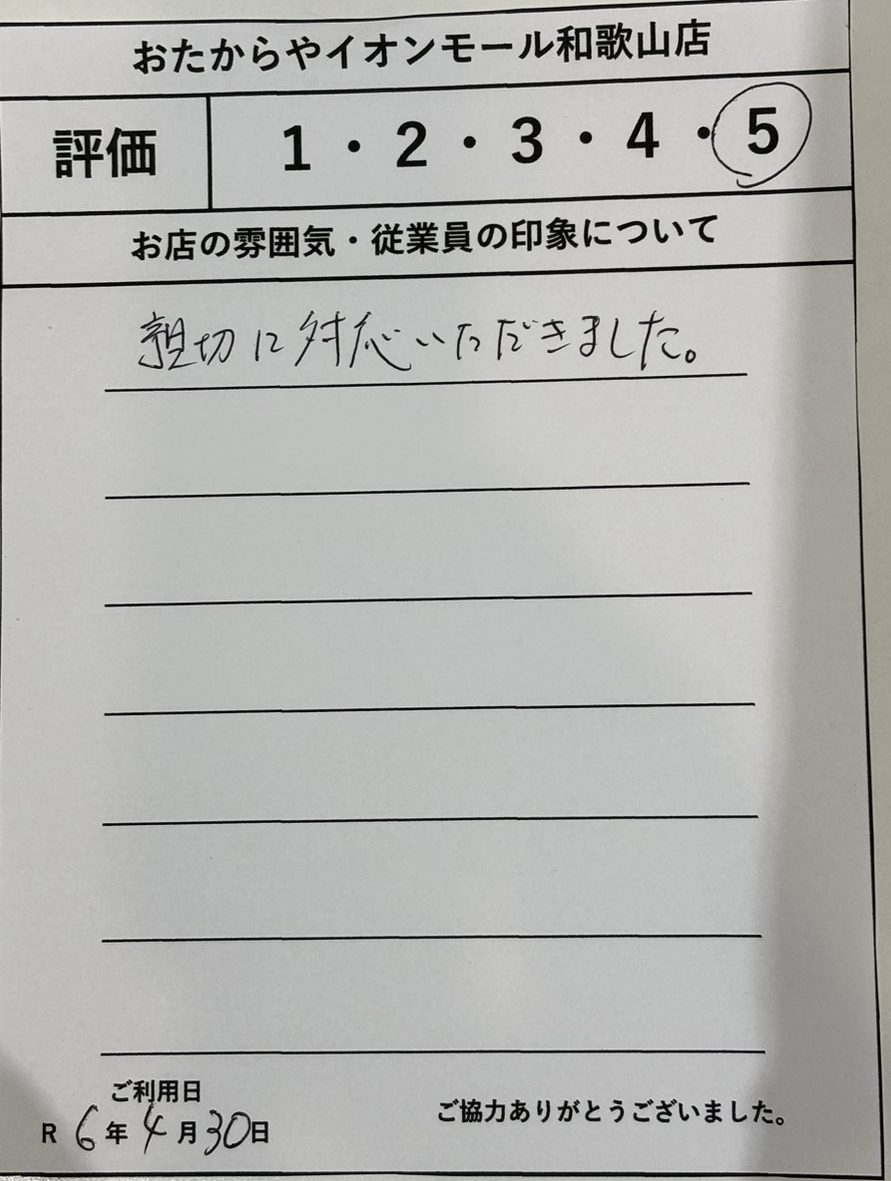 おたからやイオンモール和歌山店
評価 1・2・3・4・5
お店の雰囲気・従業員の印象について
親切に対応いただきました。
ご利用日
R 6年 4月 30日
ご協力ありがとうございました。